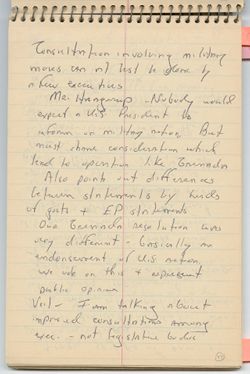 Consultation involving military
moves can not just be done by
a few executives
Mr. Hangerup - Nobody would
expect a U.S. President to
inform on military action. But
must share consideration which
lead to operation like Grenada
Also points out differences
between statements by heads
of govts + EP statements
Our Grenada resolution was
very different - basically no
endorsement of U.S. action.
we vote on this + represent
public opinion
- I am talking about
improved consultations among
exec. - not legislative bodies